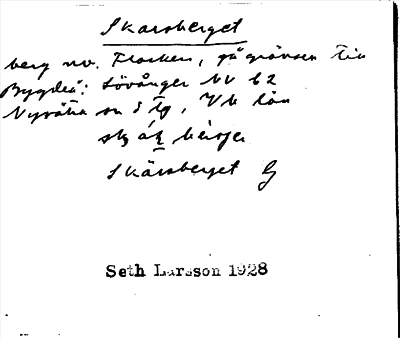 Skarsberget
berg nv. Flarken, på gränsen till
Bygdeå: Lövånger NV b2
Nysätra sn Vb län
Skärsberget G
Seth Larsson 1928